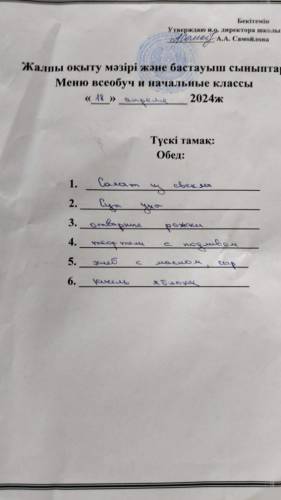 Бекітемін
Утверждаю и.о. директора школы
А.А. Самойлова
Жалпы оқыту мәзірі және бастауыш сыныптар
Меню всеобуч и начальные классы
«18» апреля 2024ж
Түскі тамақ:
Обед:
1. Салат из свеклы
2. Суп уха
3. отварные рожки
4. тефтели с подливой
5. хлеб с маслом, сыр
6. кисель яблоки